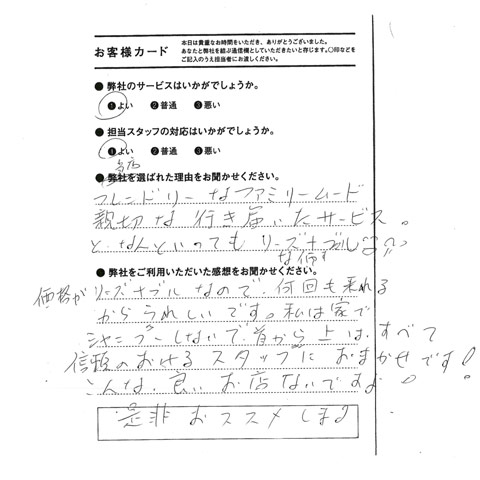 お客様カード
本日は貴重なお時間をいただき、ありがとうございました。
あなたと弊社を結ぶ通信欄としていただきたいと存じます。〇印などを
ご記入のうえ担当者にお渡しください。
● 弊社のサービスはいかがでしょうか。
❶よい ❷普通 ❸悪い
● 担当スタッフの対応はいかがでしょうか。
❶よい ❷普通 ❸悪い
● 弊社を選ばれた理由をお聞かせください。
フレンドリーなファミリームード
親切な行き届いたサービス。
と、なんといってもリーズナブル
な価
● 弊社をご利用いただいた感想をお聞かせください。
価格がリーズナブルなので、何回も来れる
からうれしいです。私は家で
シャンプーしないで、首から上は、すべて
信頼のおけるスタッフにおまかせです!
こんな、良いお店ないですよ
是非おススメします